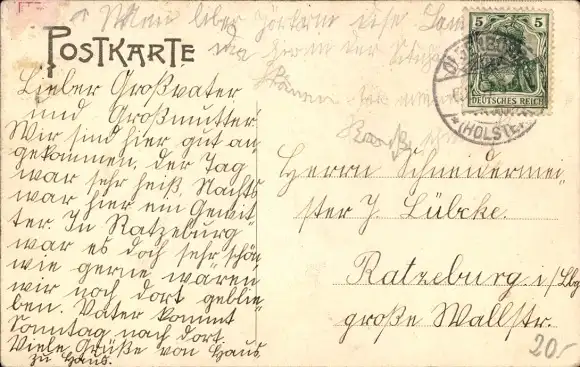 POSTKARTE
Lieber Großvater
und Großmutter
Wir sind hier gut an-
gekommen, der Tag
war sehr heiß Nachts
war hier ein Gewit
ter. In Ratzeburg
war es doch sehr schön
wie gerne wären
wir noch dort geblie-
ben. Vater kommt
Sonntag nach dort.
Viele Grüße von Haus
zu Haus.
5 5
DEUTSCHES REICH
(HOLSTE
Herrn Schneidermei
ster J. Lübcke.
Ratzeburg. i/Lbg
große Wallstr.
20.-